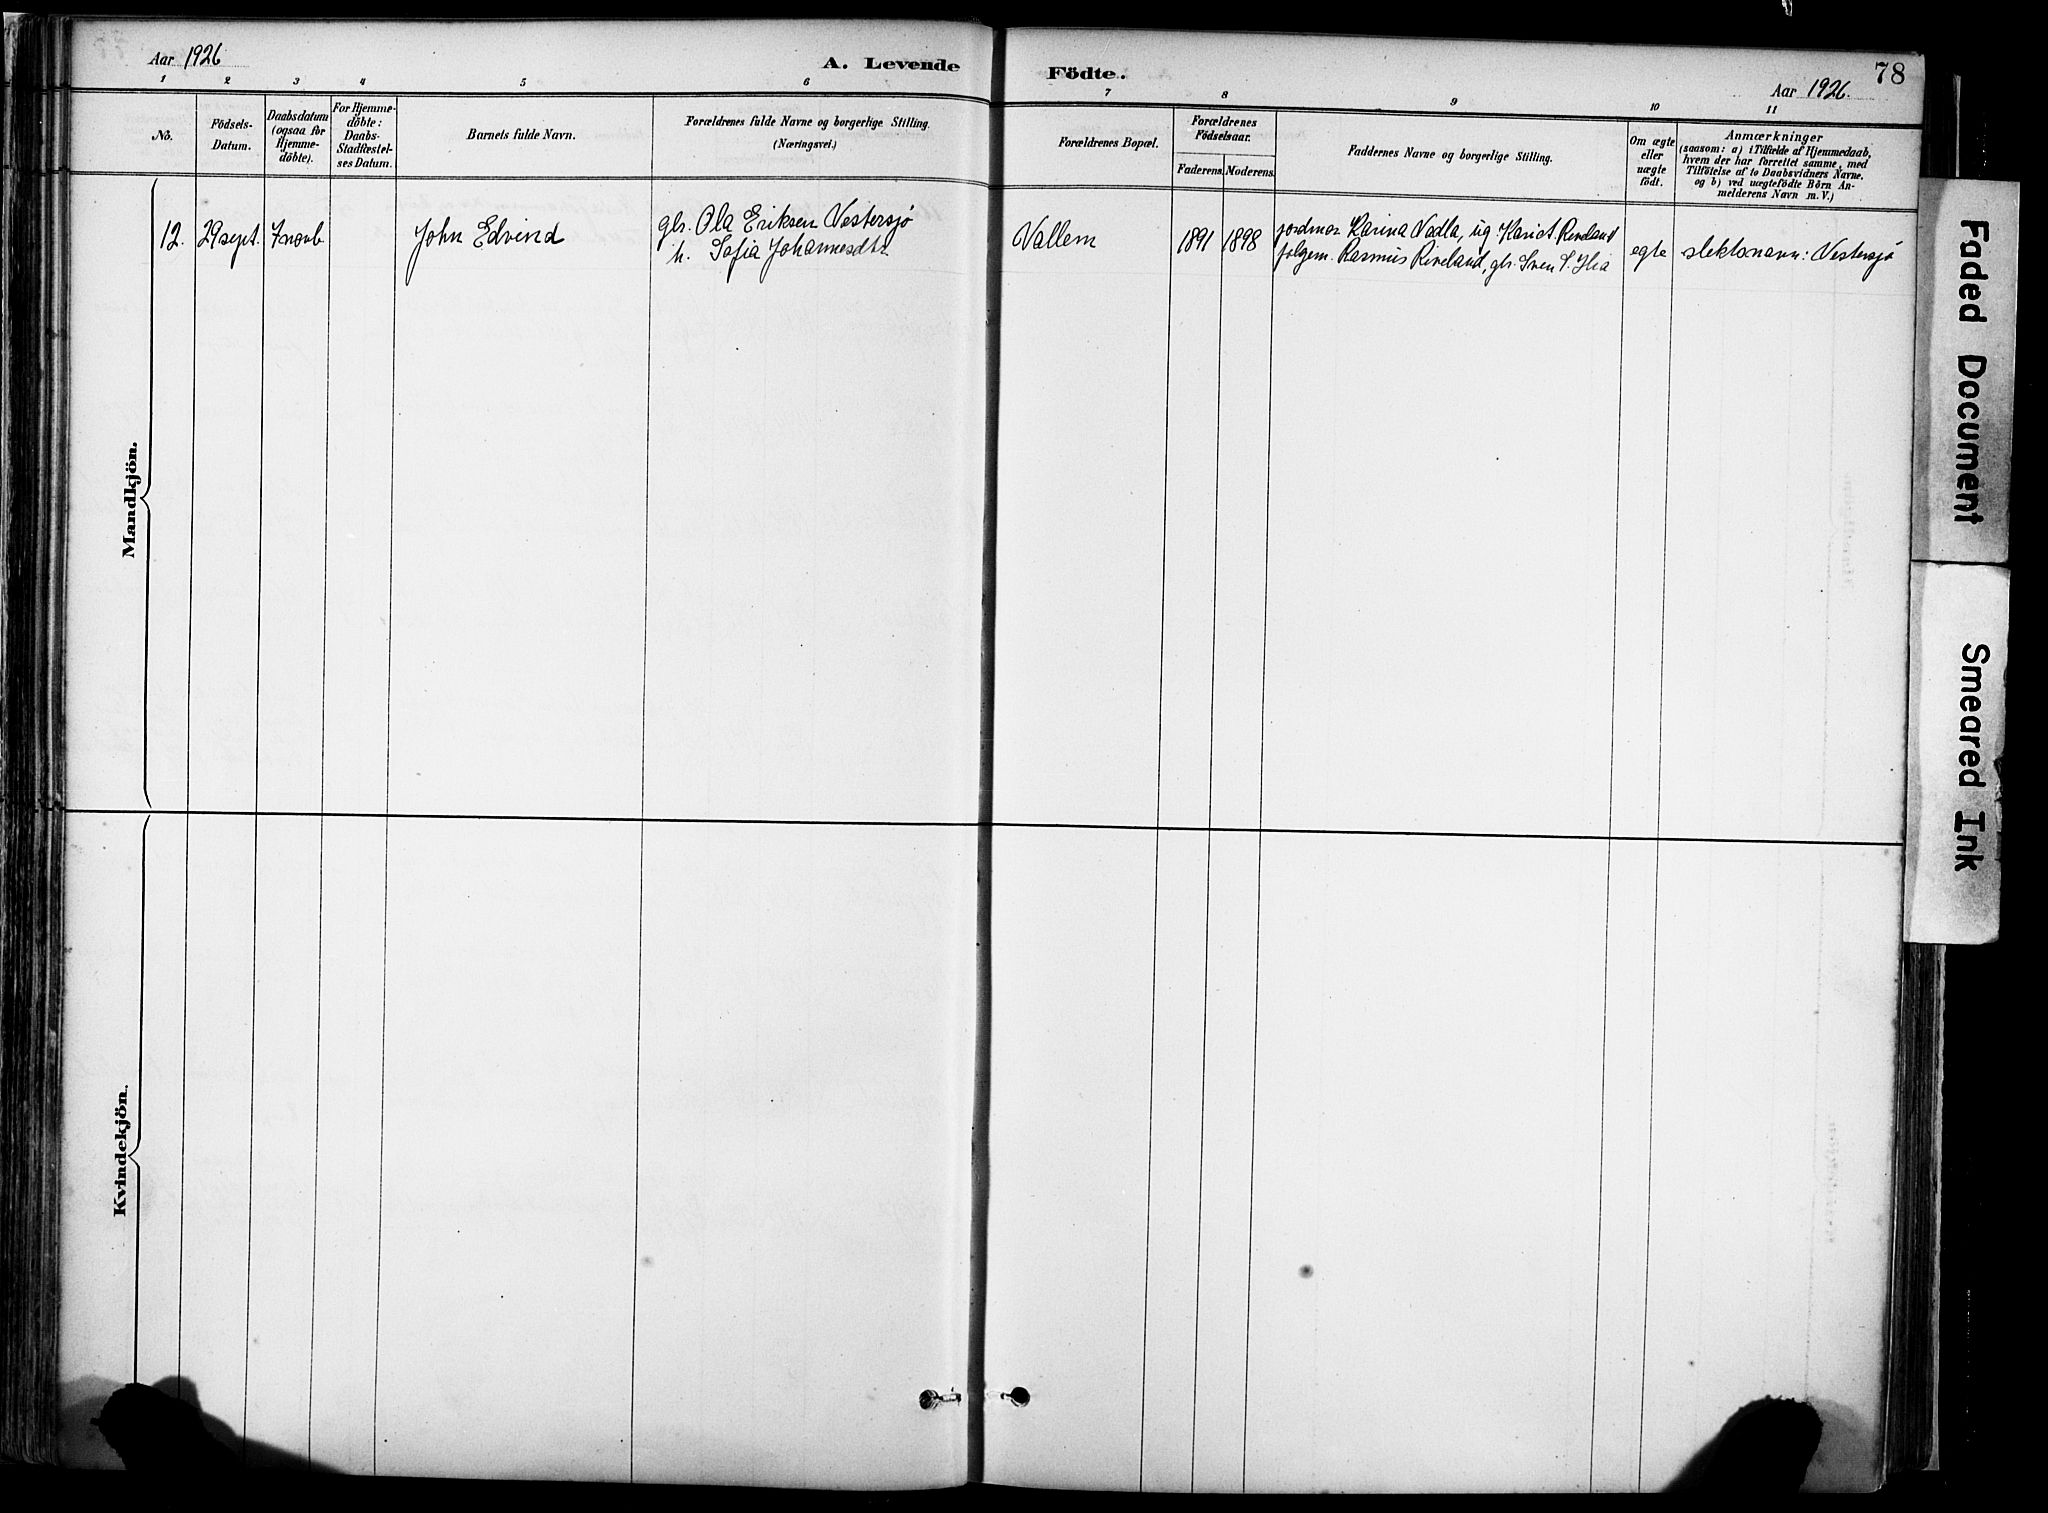 Aar 1926
A. Levende
Födte.
78
Aar 1926.
1 2 3 4 5 6 7 8 9 10 11
No.
Födsels-
Datum.
Daabsdatum
(ogsaa for
Hjemme-
döbte).
For Hjemme-
döbte:
Daabs-
Stadfæstel-
ses Datum.
Barnets fulde Navn.
Forældrenes fulde Navne og borgerlige Stilling.
(Næringsvei.)
Forældrenes Bopæl.
Forældrenes
Födselsaar.
Faderens. Moderens.
Faddernes Navne og borgerlige Stilling.
Om ægte
eller
uægte
födt.
Anmærkninger
(saasom: a) i Tilfælde af Hjemmedaab,
hvem der har forrettet samme, med
Tilföielse af to Daabsvidners Navne,
og b) ved uægtefödte Börn An-
melderens Navn m. V.)
Mandkjön.
12. 29 sept. 7 novb John Edvind
gbr. Ola Eriksen Vestersjö
h. Sofia Johannesdtr
Vallem 1891 1898
jordmor Karina Vadla, ug Kari Rineland
følgem. Rasmus Rineland, gbr. Sven S.
egte slektsnavn: Vestersjø
Kvindekjön.
Faded Document
Smeared Ink